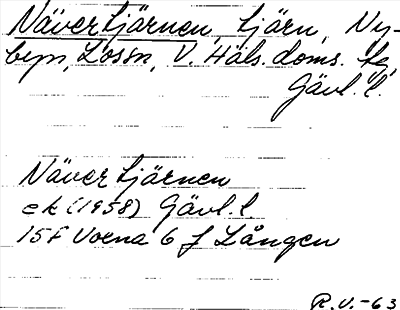 Nävertjärnen, tjärn, Ny-
byn, Lossn, V. Häls. doms. tg,
Gävl. l.
Nävertjärnen
ek (1958) Gävl. l
15F Voxna 6 f Lången
R.V.-63